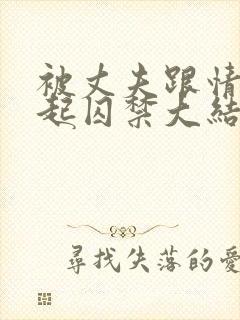 被丈夫跟情
起囚禁大結
尋找失落的愛